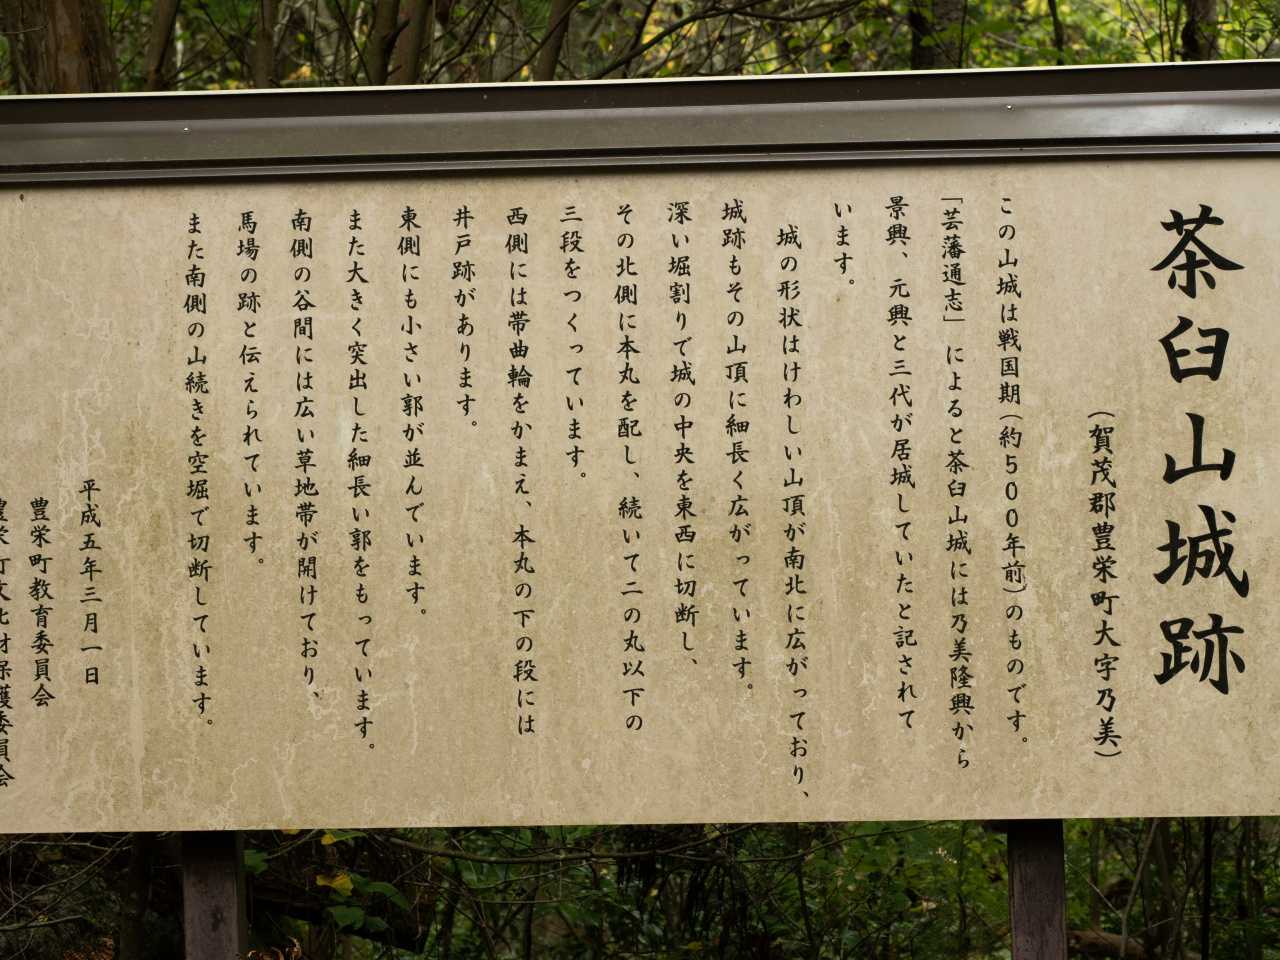 茶臼山城跡
（賀茂郡豊栄町大字乃美）
この山城は戦国期（約500年前）のものです。
「芸藩通志」によると茶臼山城には乃美隆興から
景興、元興と三代が居城していたと記されて
います。
城の形状はけわしい山頂が南北に広がっており、
城跡もその山頂に細長く広がっています。
深い堀割りで城の中央を東西に切断し、
その北側に本丸を配し、続いて二の丸以下の
三段をつくっています。
西側には帯曲輪をかまえ、本丸の下の段には
井戸跡があります。
東側にも小さい郭が並んでいます。
また大きく突出した細長い郭をもっています。
南側の谷間には広い草地帯が開けており、
馬場の跡と伝えられています。
また南側の山続きを空堀で切断しています。
平成五年三月一日
豊栄町教育委員会
豊栄町文化財保護委員会